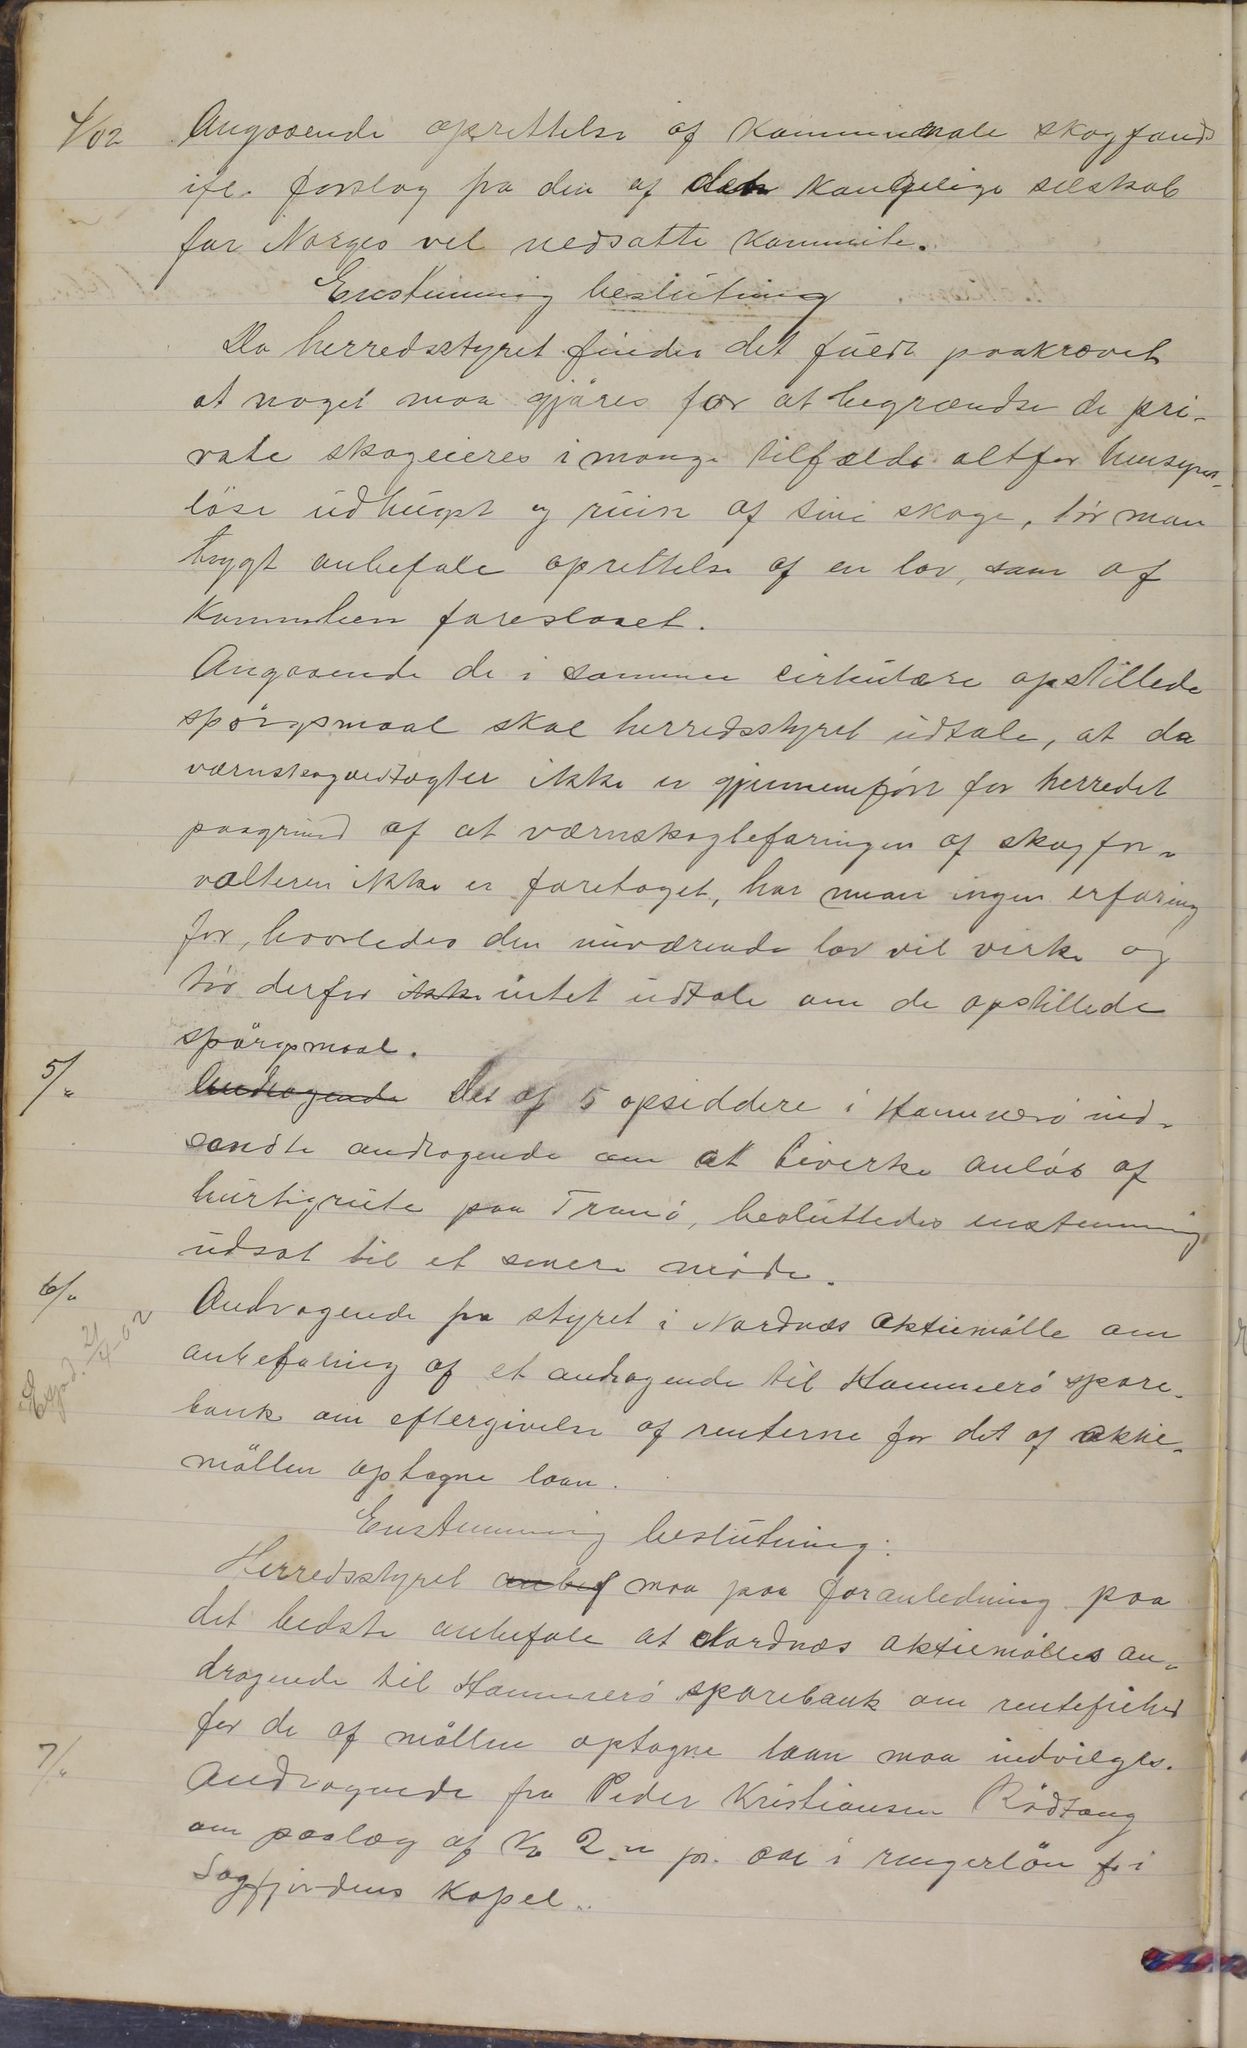 4/02 Angaaende oprettelse af kommunale skogfonds
ifl. forslag fra den af det kongelige selskab
for Norges vel nedsatte kommite.
Enstemmig beslutning
Da herredsstyret finder det fuldt paakrævet
at noget maa gjöres for at begrændse de pri-
vate skogeieres i mange tilfælde altfor hensyns-
löse udhugst og ruin af sine skoge, tör man
trygt anbefale oprettelse af en lov, som af
Kommiteen foreslaaet.
Angaaende de i samme cirkulære opstillede
spörgsmaal skal herredsstyret udtale, at da
værnskogvedtægter ikke er gjennemfört for herredet
paagrund af at værnskogbefaringen af skogfor-
valteren ikke er foretaget, har man ingen erfaring
for, hvorledes den nuværende lov vil virke og
tör derfor ikke intet udtale om de opstillede
spörgsmaal.
5/" Andragende Det af 5 opsiddere i Hammerö ind-
sendte andragende om at bevirke anlöb af
hurtigrute paa Tranö, besluttedes enstemmig
udsat til et senere möde.
6/" Andragende fra styret i Nordnæs aktiemölle om
Exped. 21/4-02
anbefaling af et andragende til Hammerö spare-
bank om eftergivelse af renterne for det af aktie-
möllen optagne laan.
Enstemmig beslutning:
Herredsstyret anbef maa paa foranledning paa
det bedste anbefale at Nordnæs aktiemölles an-
dragende til Hammerö sparebank om rentefrihed
for de af möllen optagne laan maa indvilges.
7/" Andragende fra Peder Kristiansen Rödtang
om paalæg af Kr 2 " pr. aar i ringerlön f i
Sagfjordens Kapel.